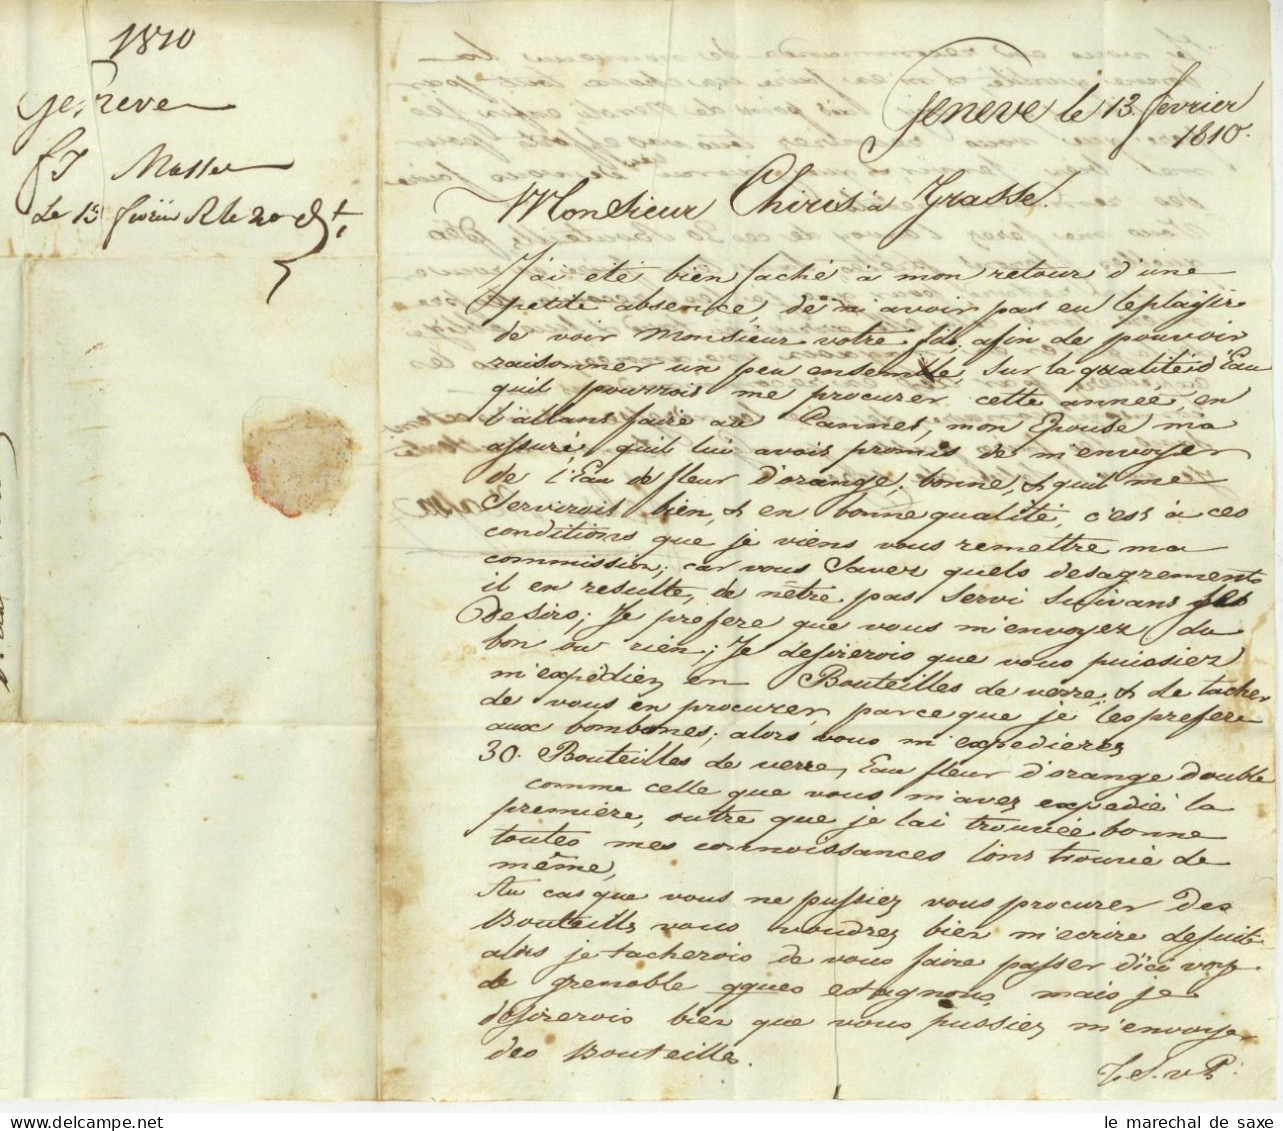 1810
Geneve
F J Masson
Le 13 fevrier R le 20 dt
Geneve le 13. fevrier
1810.
Monsieur Chiris à Grasse.
J'ai eté bien faché à mon retour d'une
petite absence, de n'avoir pas eu le plaisir
de voir Monsieur votre fils, afin de pouvoir
raisonner un peu ensemble, sur la qualité d'Eau
quil pourrois me procurer cette année, en
l'allant faire au Cannet, mon Epouse m'a
assuré, quil lui avois promis de m'envoyer
de l'Eau de fleur d'orange, bonne, & quil me
Serviroit bien, & en bonne qualité, c'est à ces
conditions que je viens vous remettre ma
commission, car vous Savez quels desagrements
il en resulte, de nêtre pas servi suivans ses
desirs; Je prefere que vous m'envoyez du
bon ou rien; Je desirerois que vous puissiez
m'expédiez en Bouteilles de verre, & de tacher
de vous en procurer, parce que je les prefere
aux bombones; alors vous m'expedierez
30. Bouteilles de verre, Eau fleur d'orange double
comme celle que vous m'avez expedié la
première, outre que je l'ai trouvée bonne
toutes mes connoissances l'ons trouvé de
même,
Au cas que vous ne pussiez vous procurer des
Bouteills vous voudrez bien m'ecrire desuite
alors je tacherois de vous faire passer d'ici voye
de grenoble qques estagnons, mais je
desirerois bien que vous pussiez m'envoyer
des Bouteilles.
T. S. v P.
le marechal de saxe